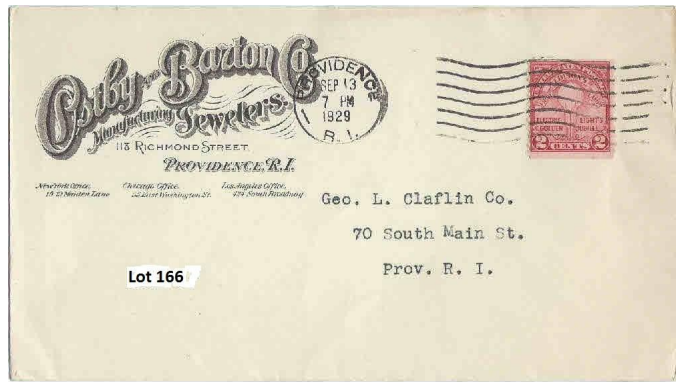 Ostby and Barton Co.
Manufacturing Jewelers.
118 RICHMOND STREET,
PROVIDENCE, R.I.
New York Office,
Chicago Office,
Los Angeles Office,
Maiden Lane
East Washington St.
South Broadway
PROVIDENCE
SEP 13
7 PM
1929
R. I.
ELECTRIC LIGHT'S
GOLDEN JUBILEE
2 CENTS 2
Geo. L. Claflin Co.
70 South Main St.
Prov. R. I.
Lot 166